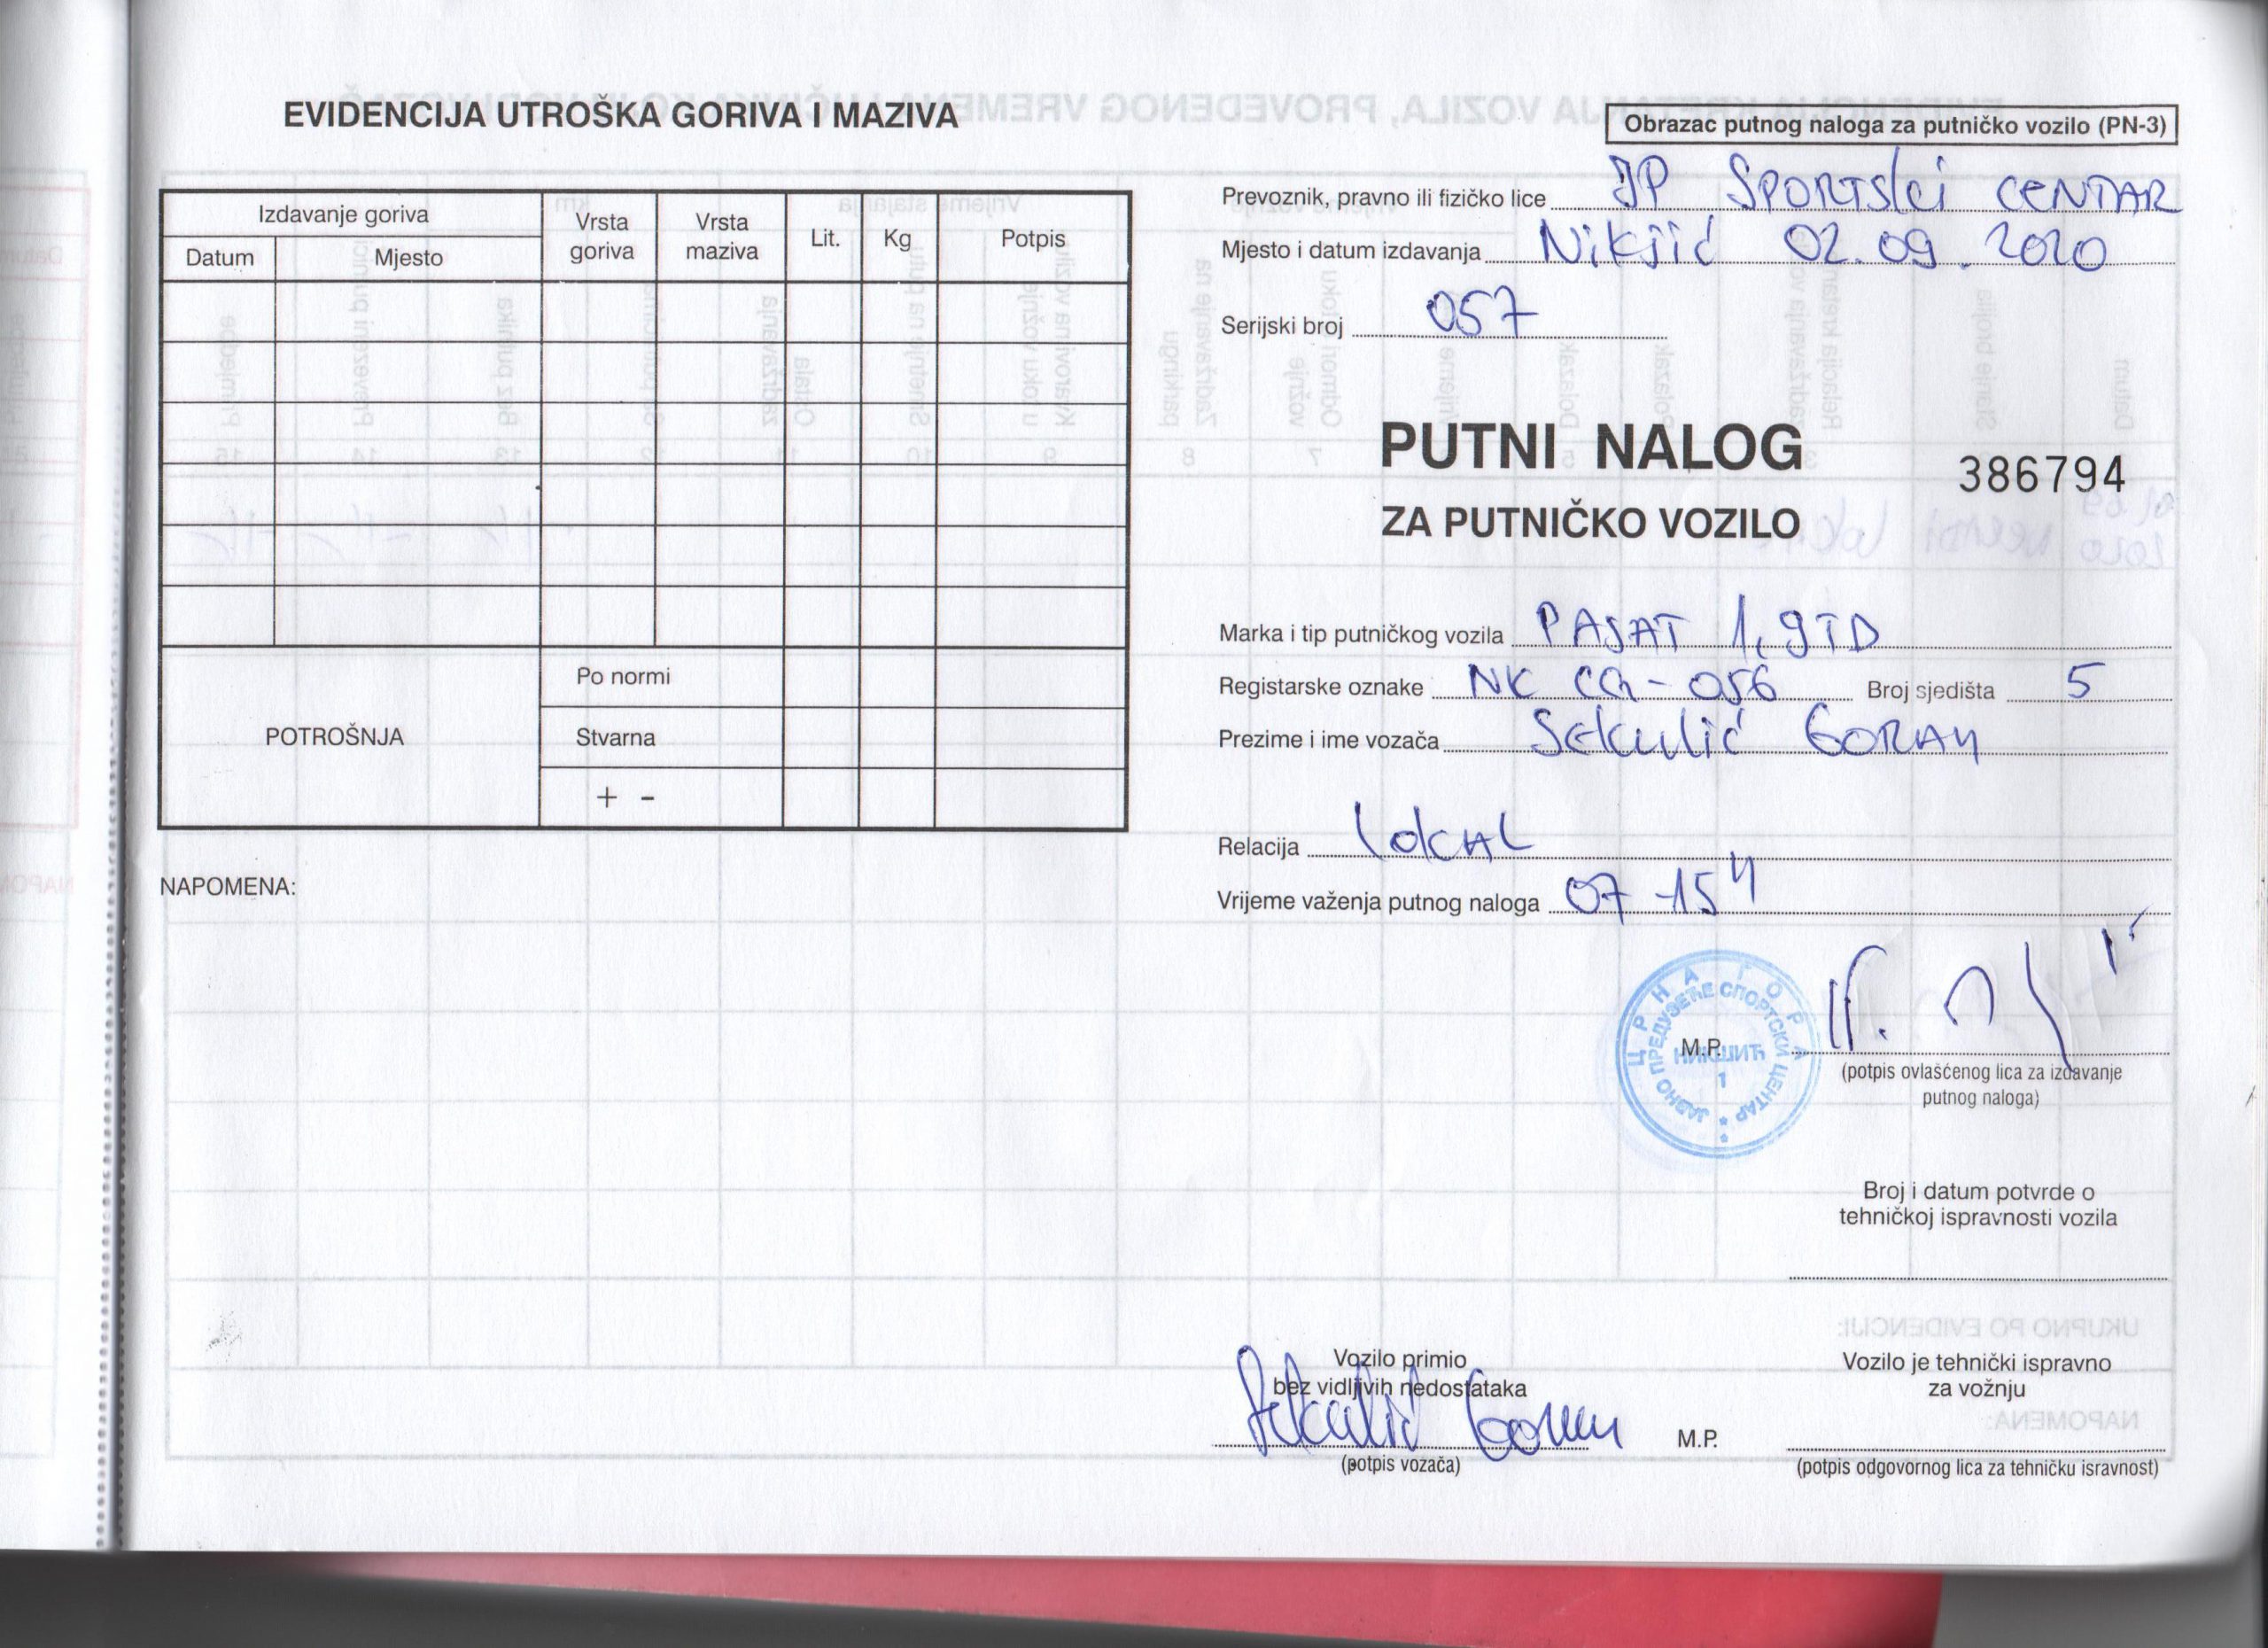 EVIDENCIJA UTROŠKA GORIVA I MAZIVA
Izdavanje goriva
Datum
Mjesto
Vrsta goriva
Vrsta maziva
Lit.
Kg
Potpis
POTROŠNJA
Po normi
Stvarna
+ -
NAPOMENA:
Obrazac putnog naloga za putničko vozilo (PN-3)
Prevoznik, pravno ili fizičko lice JP SPORTSKI CENTAR
Mjesto i datum izdavanja Nikšić 02.09.2020
Serijski broj 057
PUTNI NALOG
386794
ZA PUTNIČKO VOZILO
Marka i tip putničkog vozila PASAT 1,9TD
Registarske oznake NK CG-056 Broj sjedišta 5
Prezime i ime vozača Sekulić GORAN
Relacija LOKAL
Vrijeme važenja putnog naloga 07-15 h
ЦРНА ГОРА
ЈАВНО ПРЕДУЗЕЋЕ СПОРТСКИ ЦЕНТАР
НИКШИЋ
1
M.P.
(potpis ovlašćenog lica za izdavanje
putnog naloga)
Broj i datum potvrde o
tehničkoj ispravnosti vozila
Vozilo primio
bez vidljivih nedostataka
Sekulić Goran
(potpis vozača)
M.P.
Vozilo je tehnički ispravno
za vožnju
(potpis odgovornog lica za tehničku isravnost)